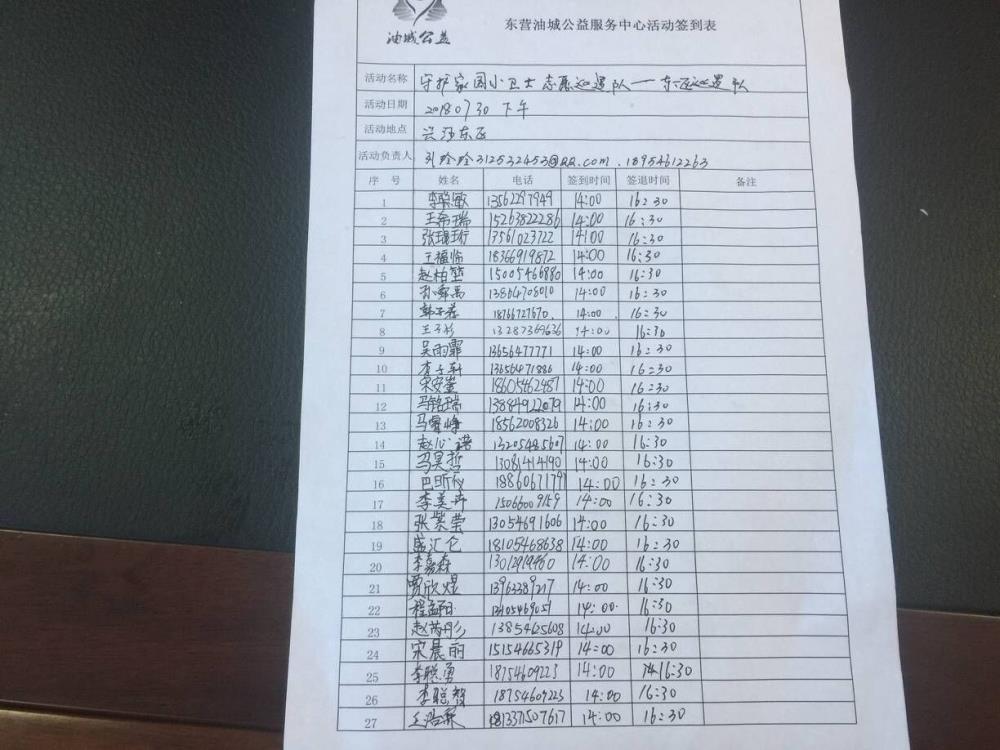 油城公益
东营油城公益服务中心活动签到表
活动名称 守护家园小卫士志愿巡逻队一东区巡逻队
活动日期 20180730 下午
活动地点 东区
活动负责人 312532453@QQ.com . 18954612263
序号 姓名 电话 签到时间 签退时间 备注
1 李聪敏 13562297949 14:00 16:30
2 王希瑞 15263822286 14:00 16:30
3 张琨珩 13561023722 14:00 16:30
4 王福临 18366919872 14:00 16:30
5 赵柏堃 15005466880 14:00 16:30
6 孙舜禹 13864708010 14:00 16:30
7 韩子茗 18766727670 14:00 16:30
8 王子杉 13287369636 14:00 16:30
9 吴雨霏 13656477771 14:00 16:30
10 李子轩 13656471886 14:00 16:30
11 宋安 18605462487 14:00 16:30
12 马铭瑞 13884922079 14:00 16:30
13 马睿峥 18562008326 14:00 16:30
14 赵心诺 13205485607 14:00 16:30
15 马昊哲 13081414190 14:00 16:30
16 巴昕 18860671791 14:00 16:30
17 李美卉 15066009159 14:00 16:30
18 张紫莹 13054691606 14:00 16:30
19 盛汇仑 18105468638 14:00 16:30
20 李嘉森 13012919460 14:00 16:30
21 贾欣煜 13963389217 14:00 16:30
22 程孟阳 14:00 16:30
23 赵芮彤 13854625608 14:00 16:30
24 宋晨丽 15154665319 14:00 16:30
25 李聪勇 18754609223 14:00 16:30
26 李聪智 18754609223 14:00 16:30
27 王浩霖 1813371507617 14:00 16:30